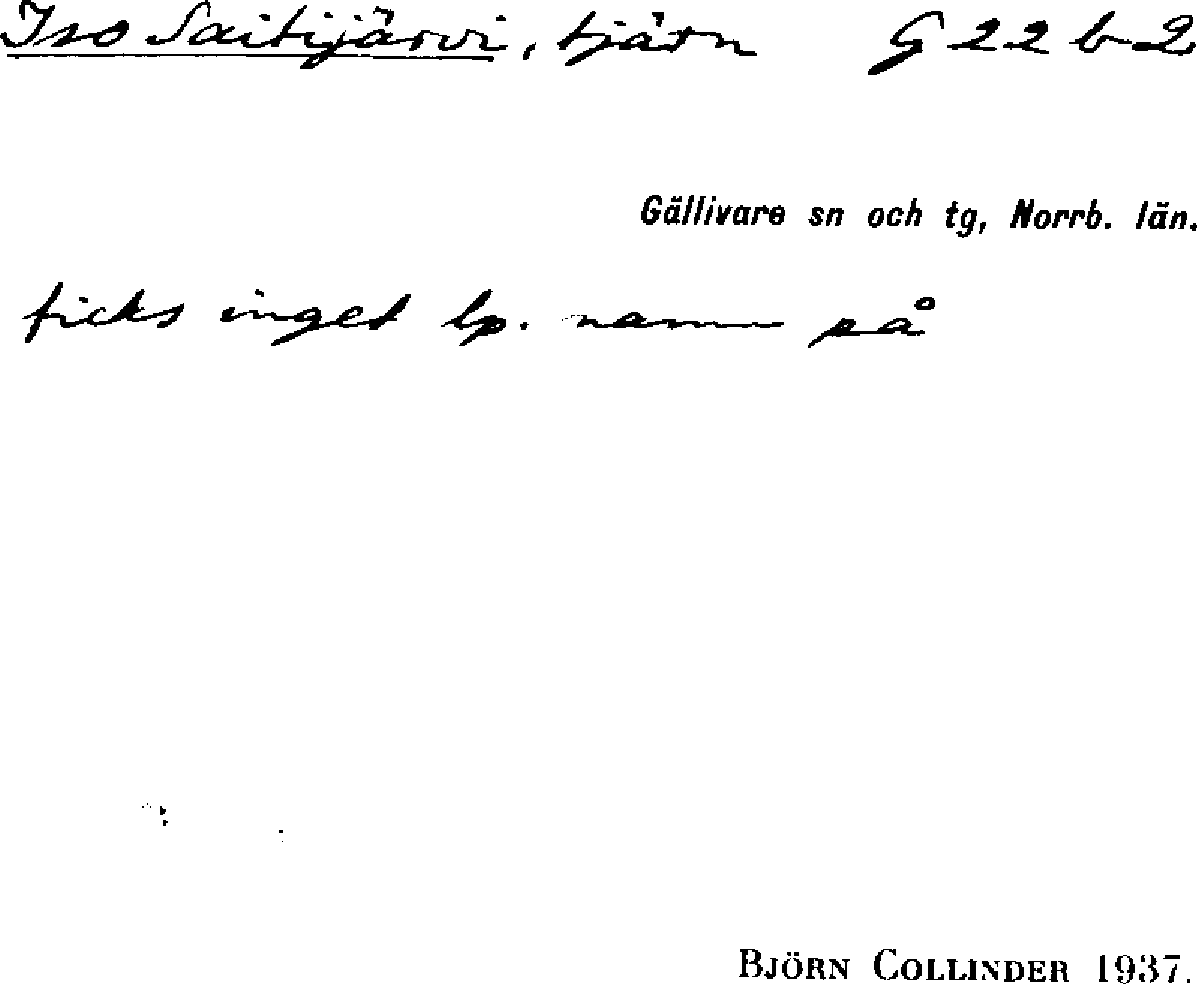 Iso Saitijärvi, tjärn G 22 b 2
Gällivare sn och tg, Norrb. län.
ficks inget lp. namn på
BJÖRN COLLINDER 1937.